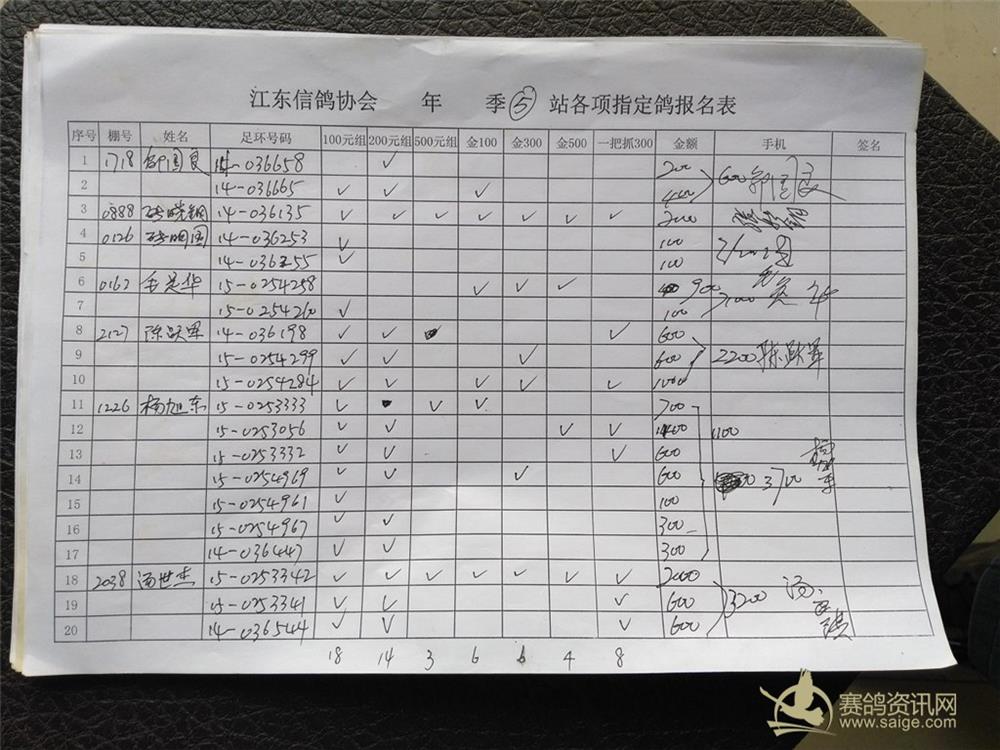 江东信鸽协会 年 季 ⑤ 站各项指定鸽报名表
序号 棚号 姓名 足环号码 100元组 200元组 500元组 金100 金300 金500 一把抓300 金额 手机 签名
1 1718 14-036658 ✓ 200
2 14-036665 ✓ ✓ ✓ 400 600
3 0888 14-036135 ✓ ✓ ✓ ✓ ✓ ✓ ✓ 2000
4 0126 14-036253 ✓ 100
5 14-036255 ✓ 100
6 0162 毛是华 15-0254258 ✓ ✓ ✓ 900
7 15-0254260 ✓ 100
8 2127 陈跃军 14-036198 ✓ ✓ ✓ 600
9 15-0254299 ✓ ✓ ✓ 600 2200 陈跃军
10 15-0254284 ✓ ✓ ✓ ✓ ✓ 1000
11 1226 杨旭东 15-0253333 ✓ ✓ ✓ 700
12 15-0253056 ✓ ✓ ✓ ✓ 1100
13 15-0253332 ✓ ✓ ✓ 600
14 15-0254969 ✓ ✓ ✓ 600 3700
15 15-0254961 ✓ 100
16 15-0254967 ✓ ✓ 300
17 14-036447 ✓ ✓ 300
18 2038 汤世杰 15-0253342 ✓ ✓ ✓ ✓ ✓ ✓ ✓ 2000
19 15-0253341 ✓ ✓ ✓ 600 3200
20 14-036544 ✓ ✓ ✓ 600
18 14 3 6 6 4 8
赛鸽资讯网
www.saige.com